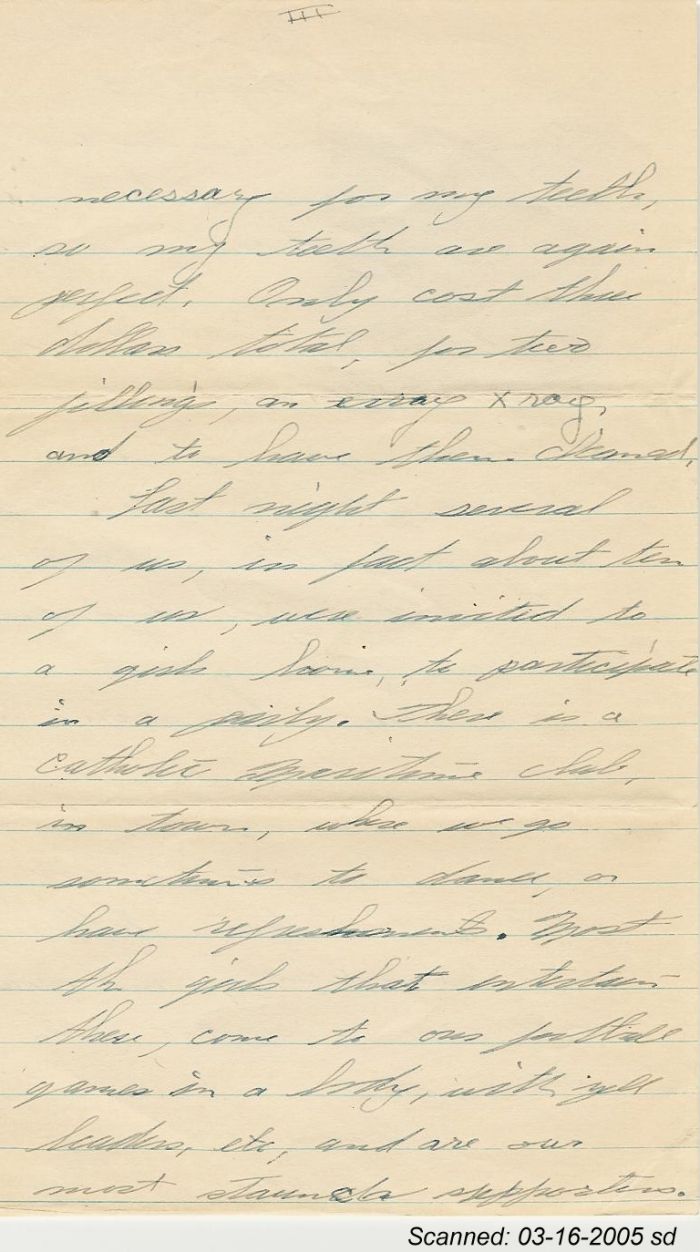 III
necessary for my teeth,
so my teeth are again
perfect. Only cost three
dollars total, for two
fillings, an xray,
and to have them cleaned.
Last night several
of us, in fact about ten
of us, were invited to
a girls home, to participate
in a party. There is a
Catholic Maritime club,
in town, where we go
sometimes to dance, or
have refreshments. Most
th girls that entertain
there, come to our football
games in a body, with yell
leaders, etc, and are our
most staunch supporters.
Scanned: 03-16-2005 sd